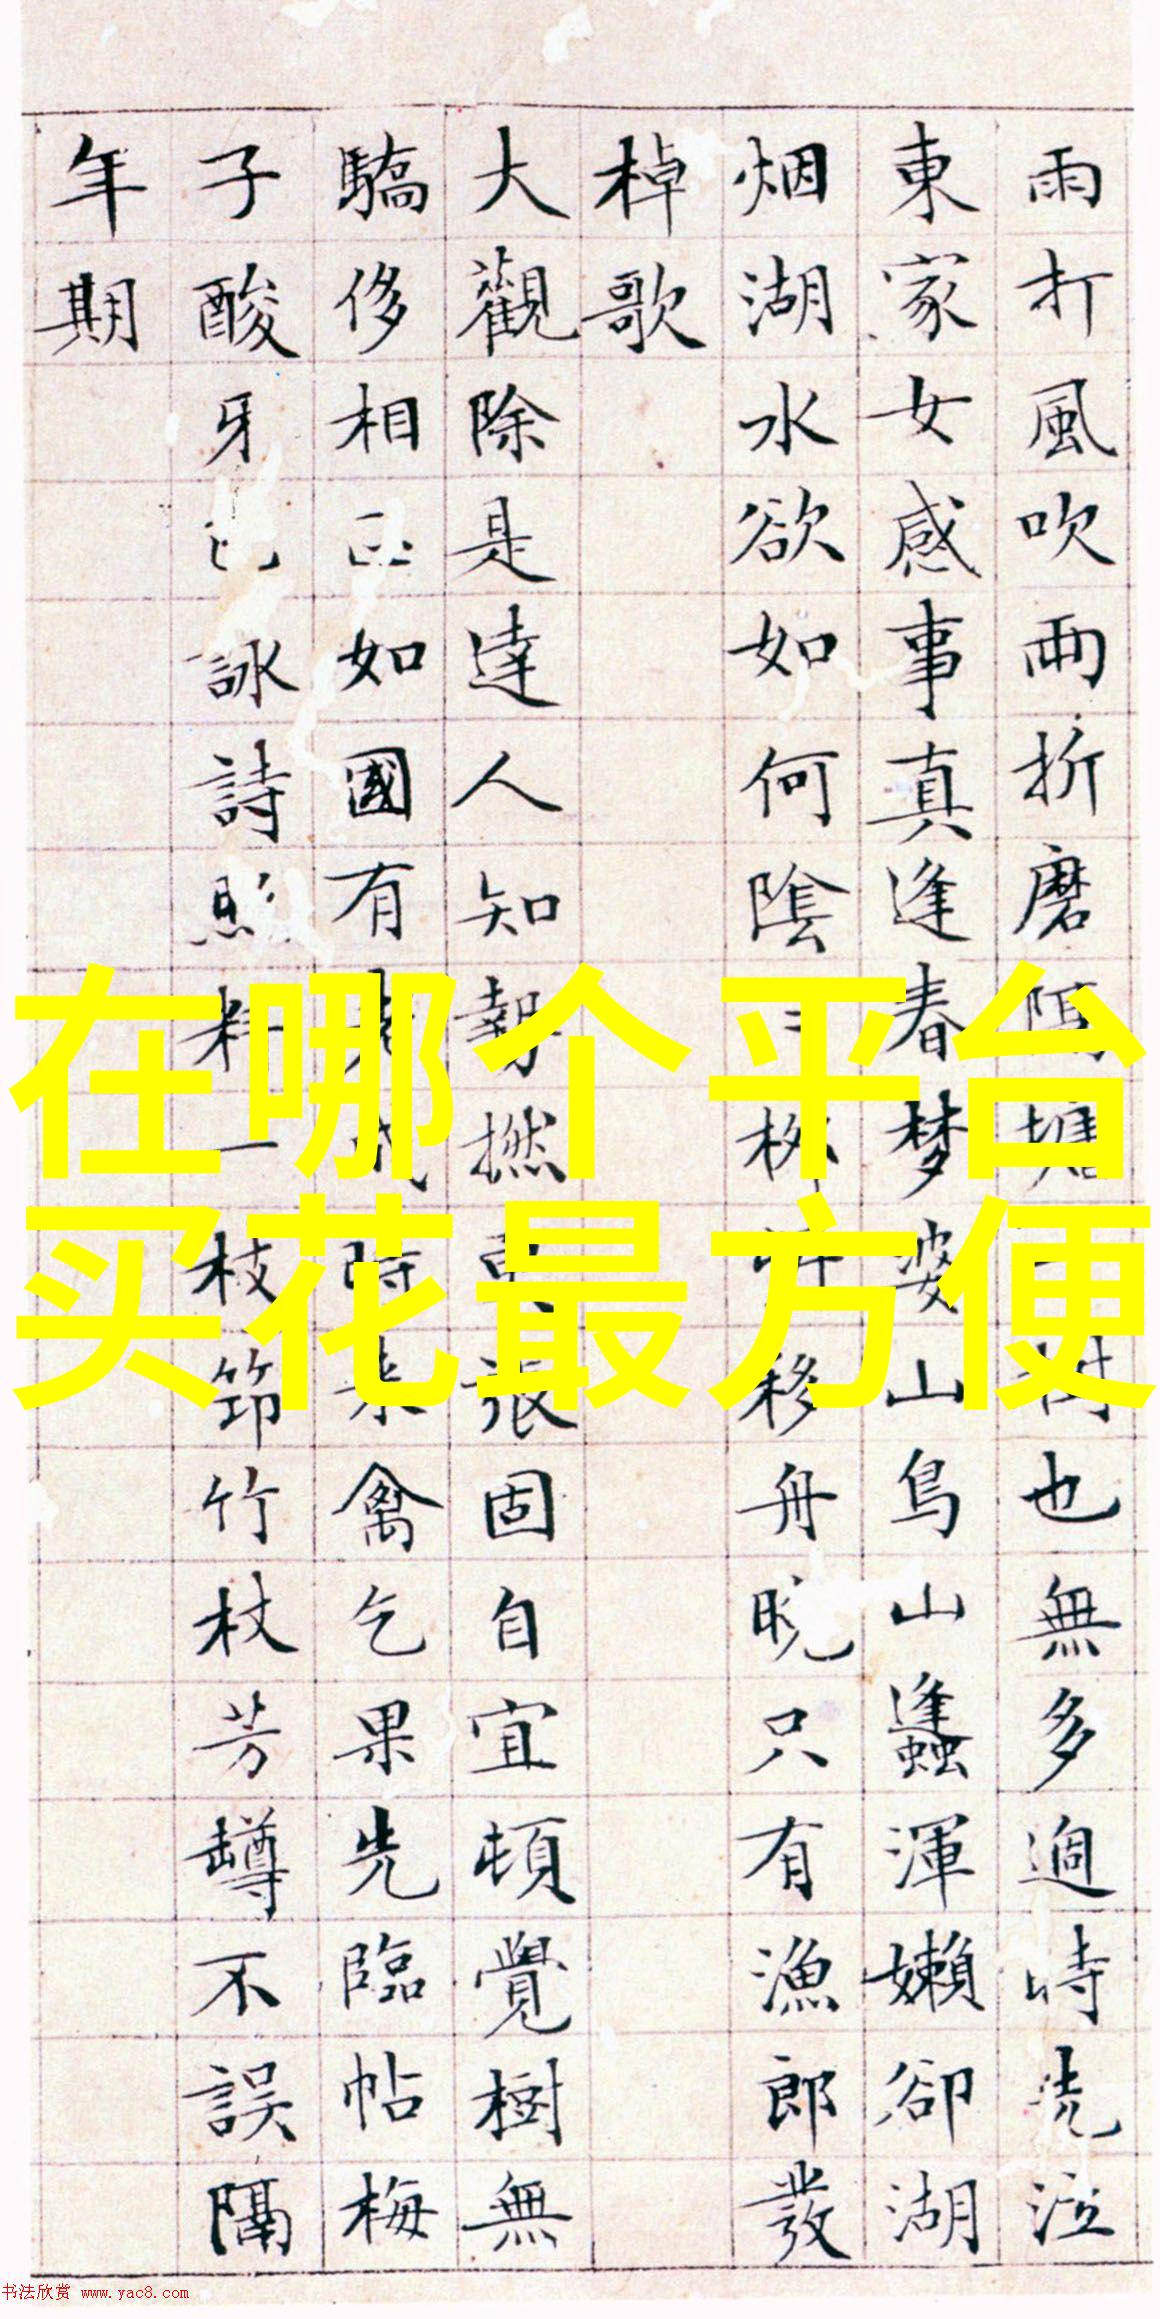 雨打風吹雨折磨隔塘一樹也無多過時洗泣
東家女感事真逢春梦婆山鳥山蠭渾嬾卻湖
烟湖水欲如何陰移舟晚只有漁郎發
棹歌
大觀除是達人知報撚張固自宜頓覺樹無
驕侈相如國有時來禽乞果先臨帖梅
子酸牙詠詩照料一枝笻竹杖芳罇不誤隔
年期
在哪个平台
买花最方便
书法欣赏 www.yac8.com